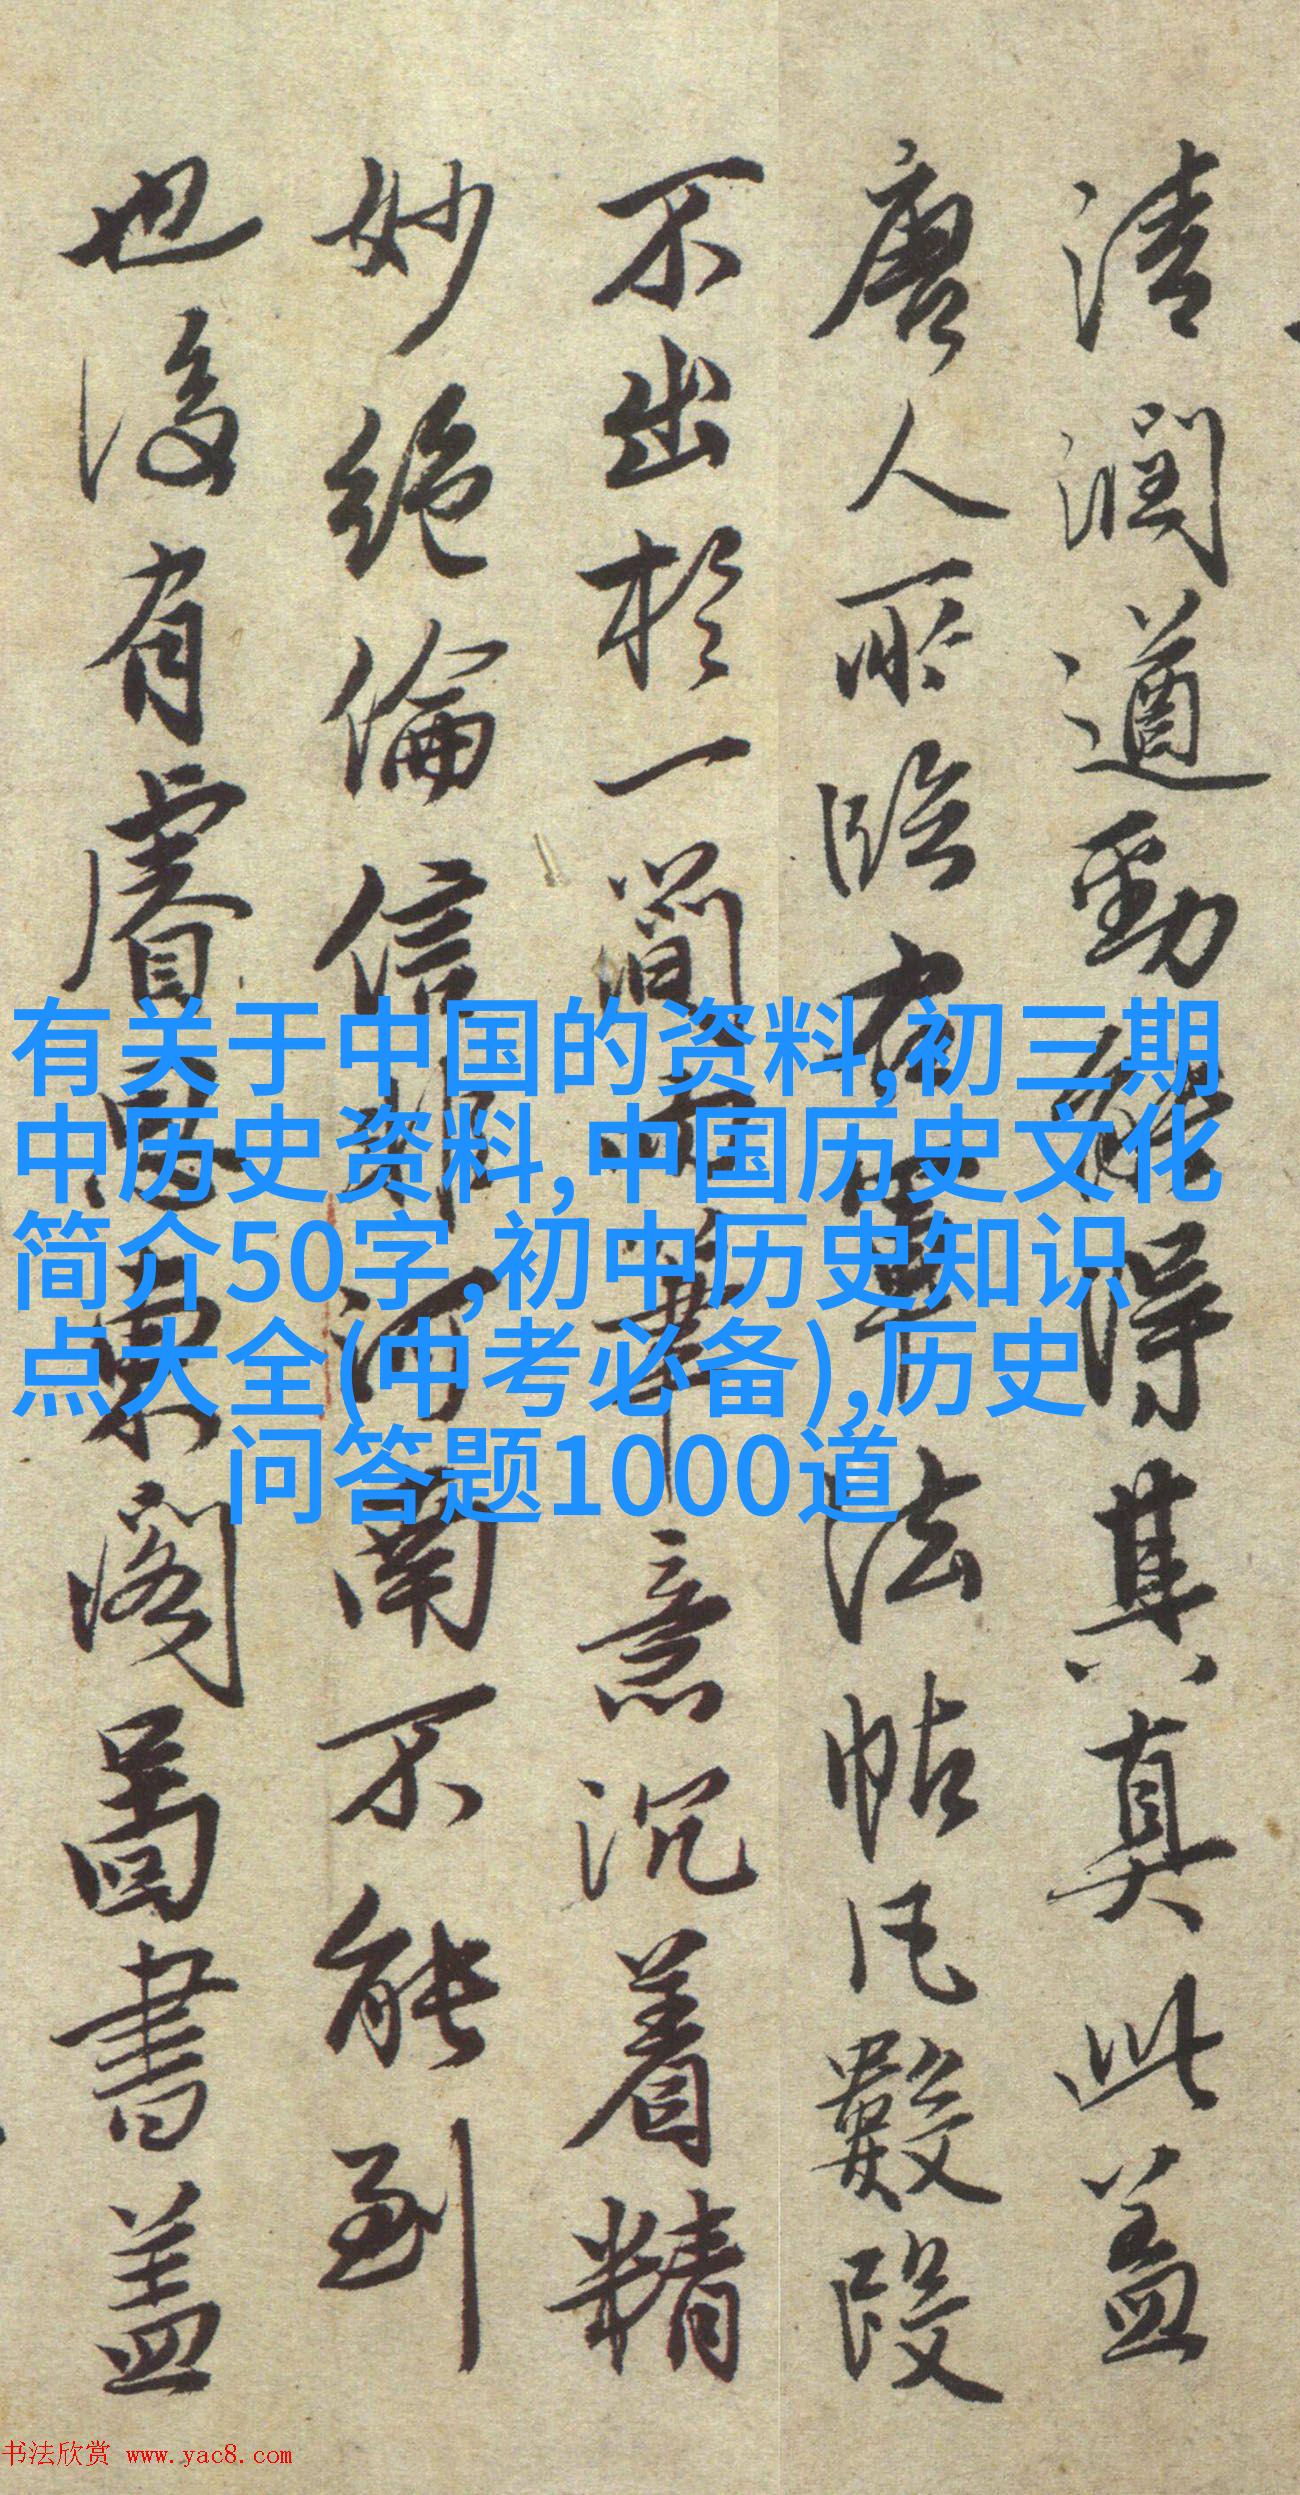 清潤遒勁能得其真此盖
唐人所臨右軍法帖凡數段
不出於一簡而筆意沉着精
妙絶倫信非河南不能到
也後有睿思東閣圖書盖
有关于中国的资料,初三期
中历史资料,中国历史文化
简介50字,初中历史知识
点大全(中考必备),历史
问答题1000道
书法欣赏 www.yac8.com